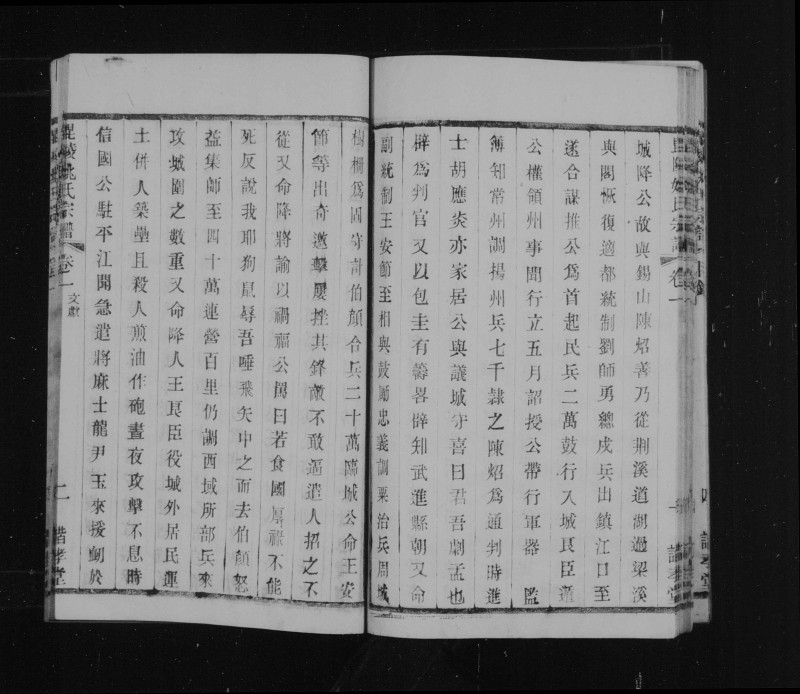 城降公故與錫山陳炤善乃從荆溪道湖過梁溪
與閣恢復適都統制劉師勇總戍兵出鎭江口至
遂合謀推公爲首起民兵二萬鼓行入城良臣遁
公權領州事聞行立五月詔授公帶行軍器監
簿知常州調揚州兵七千隷之陳炤爲通判時進
士胡應炎亦家居公與議城守喜曰君吾劇孟也
辟爲判官又以包圭有籌畧辟知武進縣朝又命
副統制王安節至相與鼓勵忠義調粟治兵周城
樹柵爲固守計伯顔合兵二十萬臨城公命王安
節等出奇邀擊屢挫其鋒敵不敢逼遣人招之不
從又命降將諭以禍福公罵曰若食國厚祿不能
死反說我耶狗鼠辱吾唾飛矢中之而去伯顔怒
益集師至四十萬連營百里仍調西域所部兵來
攻城圍之數重又命降人王良臣役城外居民運
土併人築壘且殺人煎油作砲晝夜攻擊不息時
信國公駐平江聞急遣將麻士龍尹玉來援朝於
毘陵姚氏宗譜 卷一 文獻 二